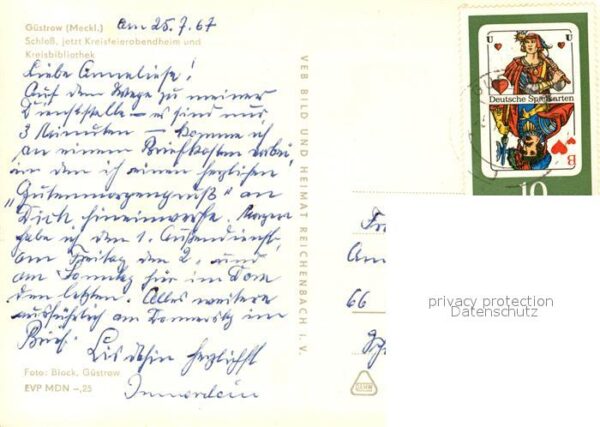 Güstrow (Meckl.) Am 25. 7. 67
Schloß, jetzt Kreisfeierabendheim und
Kreisbibliothek
Liebe Anneliese!
Auf dem Wege zu meiner
Dienststelle – es sind nur
3 Minuten – komme ich
an einem Briefkasten vorbei,
in den ich einen herzlichen
„Gutenmorgengruß" an
Dich hineinwerfe. Morgen
habe ich den 1. Außendienst,
am Freitag den 2., und
am Sonntag für im Dom
den letzten. Alles weitere
ausführlich am Donnerstag im
Brief. Bis dahin herzlichst
Foto: Block, Güstrow
EVP MDN –,25
VEB BILD UND HEIMAT REICHENBACH i. V.
U U
Deutsche Spielkarten
B
10
66
privacy protection
Datenschutz